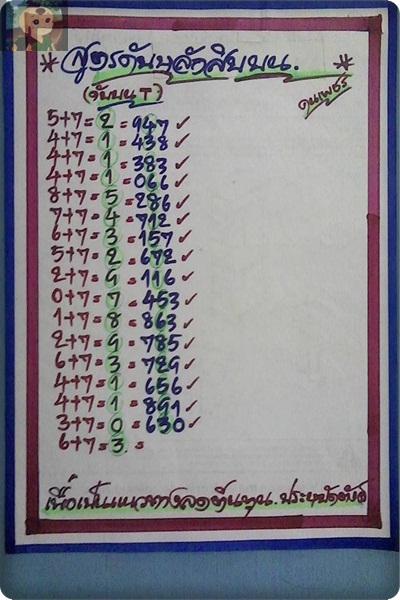 * สูตรดับหลักสิบบน. *
(ดับบน T)
คนเพชร
5+7= 2 = 947 ✓
4+7= 1 = 438 ✓
4+7= 1 = 383 ✓
4+7= 1 = 066 ✓
8+7= 5 = 286 ✓
7+7= 4 = 712 ✓
6+7= 3 = 157 ✓
5+7= 2 = 672 ✓
2+7= 9 = 116 ✓
0+7= 7 = 453 ✓
1+7= 8 = 863 ✓
2+7= 9 = 785 ✓
6+7= 3 = 729 ✓
4+7= 1 = 656 ✓
4+7= 1 = 891 ✓
3+7= 0 = 630 ✓
6+7= 3 =
เพื่อเป็นแนวทางลดต้นทุน.ประหยัด